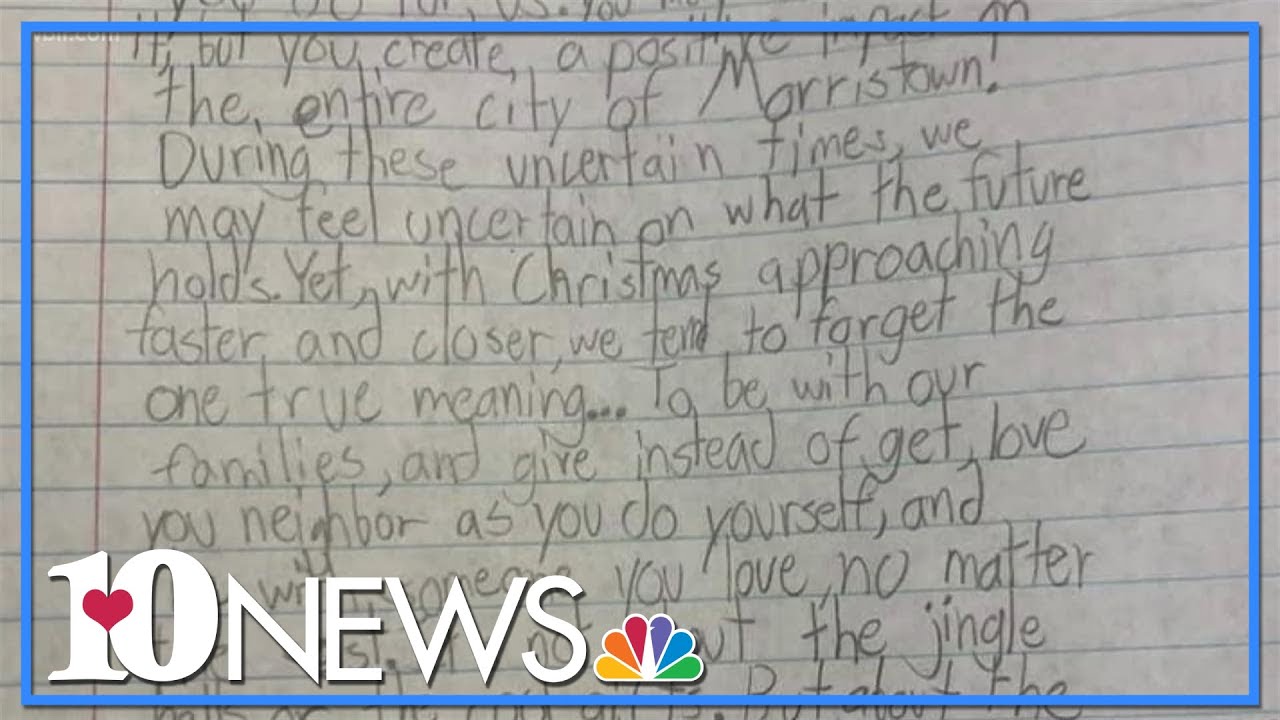 wbir.com
you do for, us. You
it, but you create, a positive impact on
the, entire city of Morristown!
During these uncertain times, we
may feel uncertain on what the future
holds. Yet, with Christmas approaching
faster, and closer, we tend to forget the
one true meaning... To be with our
families, and give instead of get, love
you neighbor as you do yourself, and
someone you love, no matter
the jingle
But about the
10 NEWS